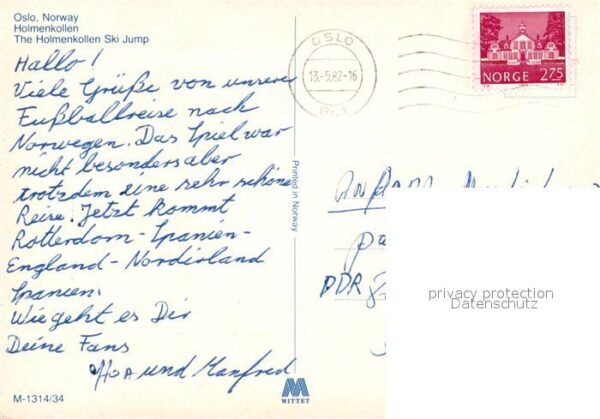 Oslo, Norway
Holmenkollen
The Holmenkollen Ski Jump
Hallo!
Viele Grüße von unserer
Fußballreise nach
Norwegen. Das Spiel war
nicht besonders aber
trotzdem eine sehr schöne
Reise. Jetzt kommt
Rotterdam-Spanien-
England-Nordirland
Spanien.
Wie geht es Dir
Deine Fans
und Manfred
M-1314/34
Printed in Norway
MITTET
OSLO
13.-5.82-16
Br.1
NORGE 275
DDR
privacy protection
Datenschutz